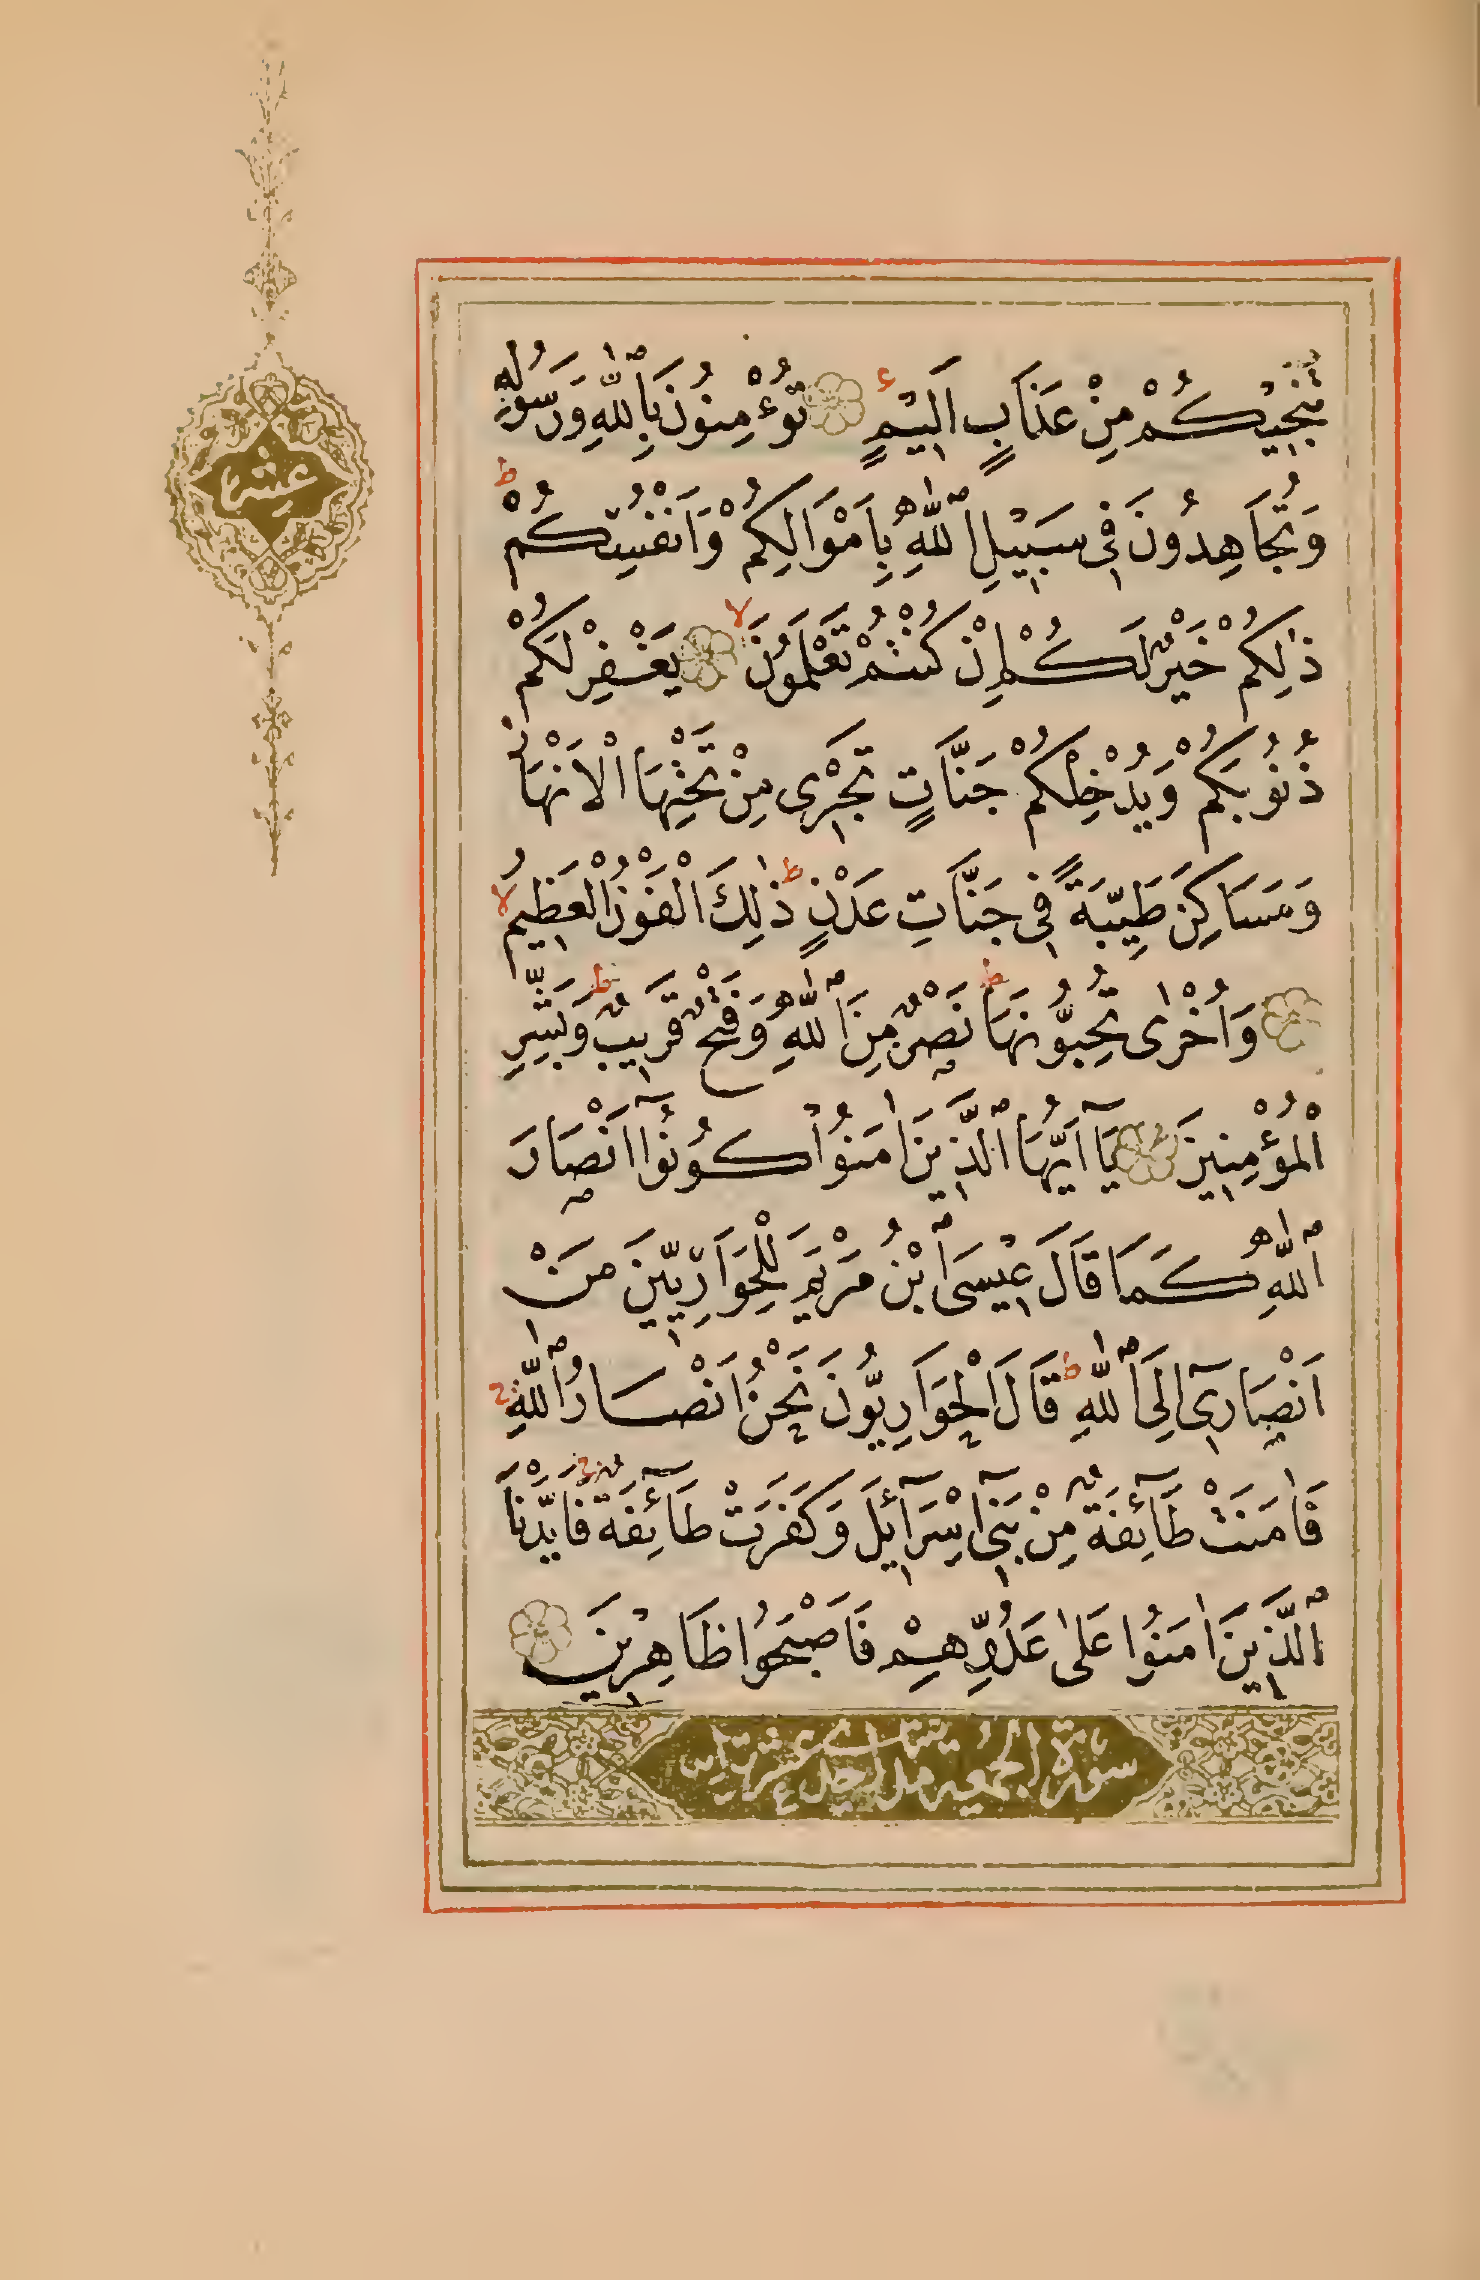 عشر
تُنْجِيكُمْ مِنْ عَذَابٍ اَلِيمٍ تُؤْمِنُونَ بِاللّٰهِ وَرَسُولِهِ
وَتُجَاهِدُونَ فِي سَبِيلِ اللّٰهِ بِاَمْوَالِكُمْ وَاَنْفُسِكُمْ
ذٰلِكُمْ خَيْرٌ لَكُمْ اِنْ كُنْتُمْ تَعْلَمُونَ يَغْفِرْ لَكُمْ
ذُنُوبَكُمْ وَيُدْخِلْكُمْ جَنَّاتٍ تَجْرِى مِنْ تَحْتِهَا الْاَنْهَارُ
وَمَسَاكِنَ طَيِّبَةً فِى جَنَّاتِ عَدْنٍ ذٰلِكَ الْفَوْزُ الْعَظِيمُ
وَاُخْرٰى تُحِبُّونَهَا نَصْرٌ مِنَ اللّٰهِ وَفَتْحٌ قَرِيبٌ وَبَشِّرِ
الْمُؤْمِنِينَ يَآ اَيُّهَا الَّذِينَ اٰمَنُوا كُونُوٓا اَنْصَارَ
اللّٰهِ كَمَا قَالَ عِيسَى ابْنُ مَرْيَمَ لِلْحَوَارِيِّينَ مَنْ
اَنْصَارِىٓ اِلَى اللّٰهِ قَالَ الْحَوَارِيُّونَ نَحْنُ اَنْصَارُ اللّٰهِ
فَاٰمَنَتْ طَآئِفَةٌ مِنْ بَنِىٓ اِسْرَآئِيلَ وَكَفَرَتْ طَآئِفَةٌ فَاَيَّدْنَا
الَّذِينَ اٰمَنُوا عَلٰى عَدُوِّهِمْ فَاَصْبَحُوا ظَاهِرِينَ
سورة الجمعة